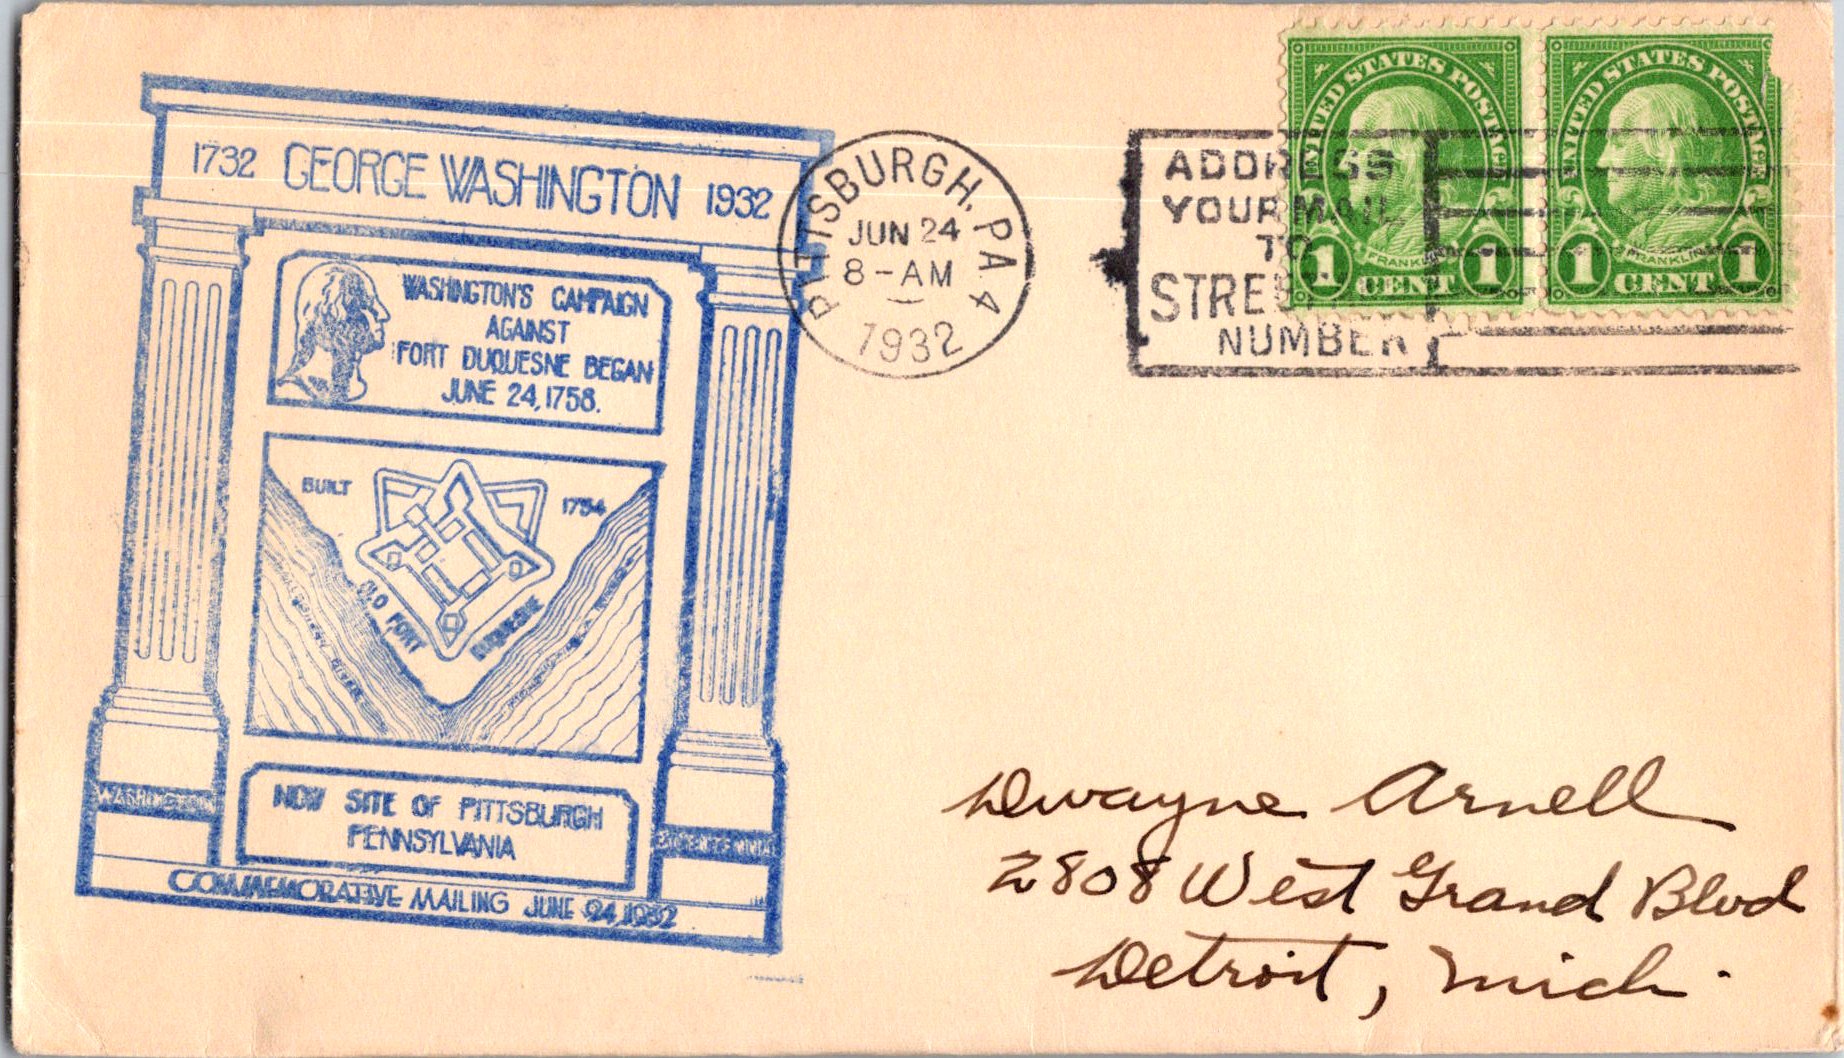 1732 GEORGE WASHINGTON 1932
WASHINGTON'S CAMPAIGN
AGAINST
FORT DUQUESNE BEGAN
JUNE 24, 1758.
BUILT 1754
OLD FORT DUQUESNE
RIVER
NOW SITE OF PITTSBURGH
PENNSYLVANIA
WASHINGTON
BICENTENNIAL
COMMEMORATIVE MAILING JUNE 24, 1932
PITTSBURGH, PA 4
JUN 24
8-AM
1932
ADDRESS
YOUR MAIL
TO
STREET
NUMBER
UNITED STATES POSTAGE
FRANKLIN
1 CENT 1
UNITED STATES POSTAGE
FRANKLIN
1 CENT 1
Dwayne Arnell
2808 West Grand Blvd
Detroit, Mich.